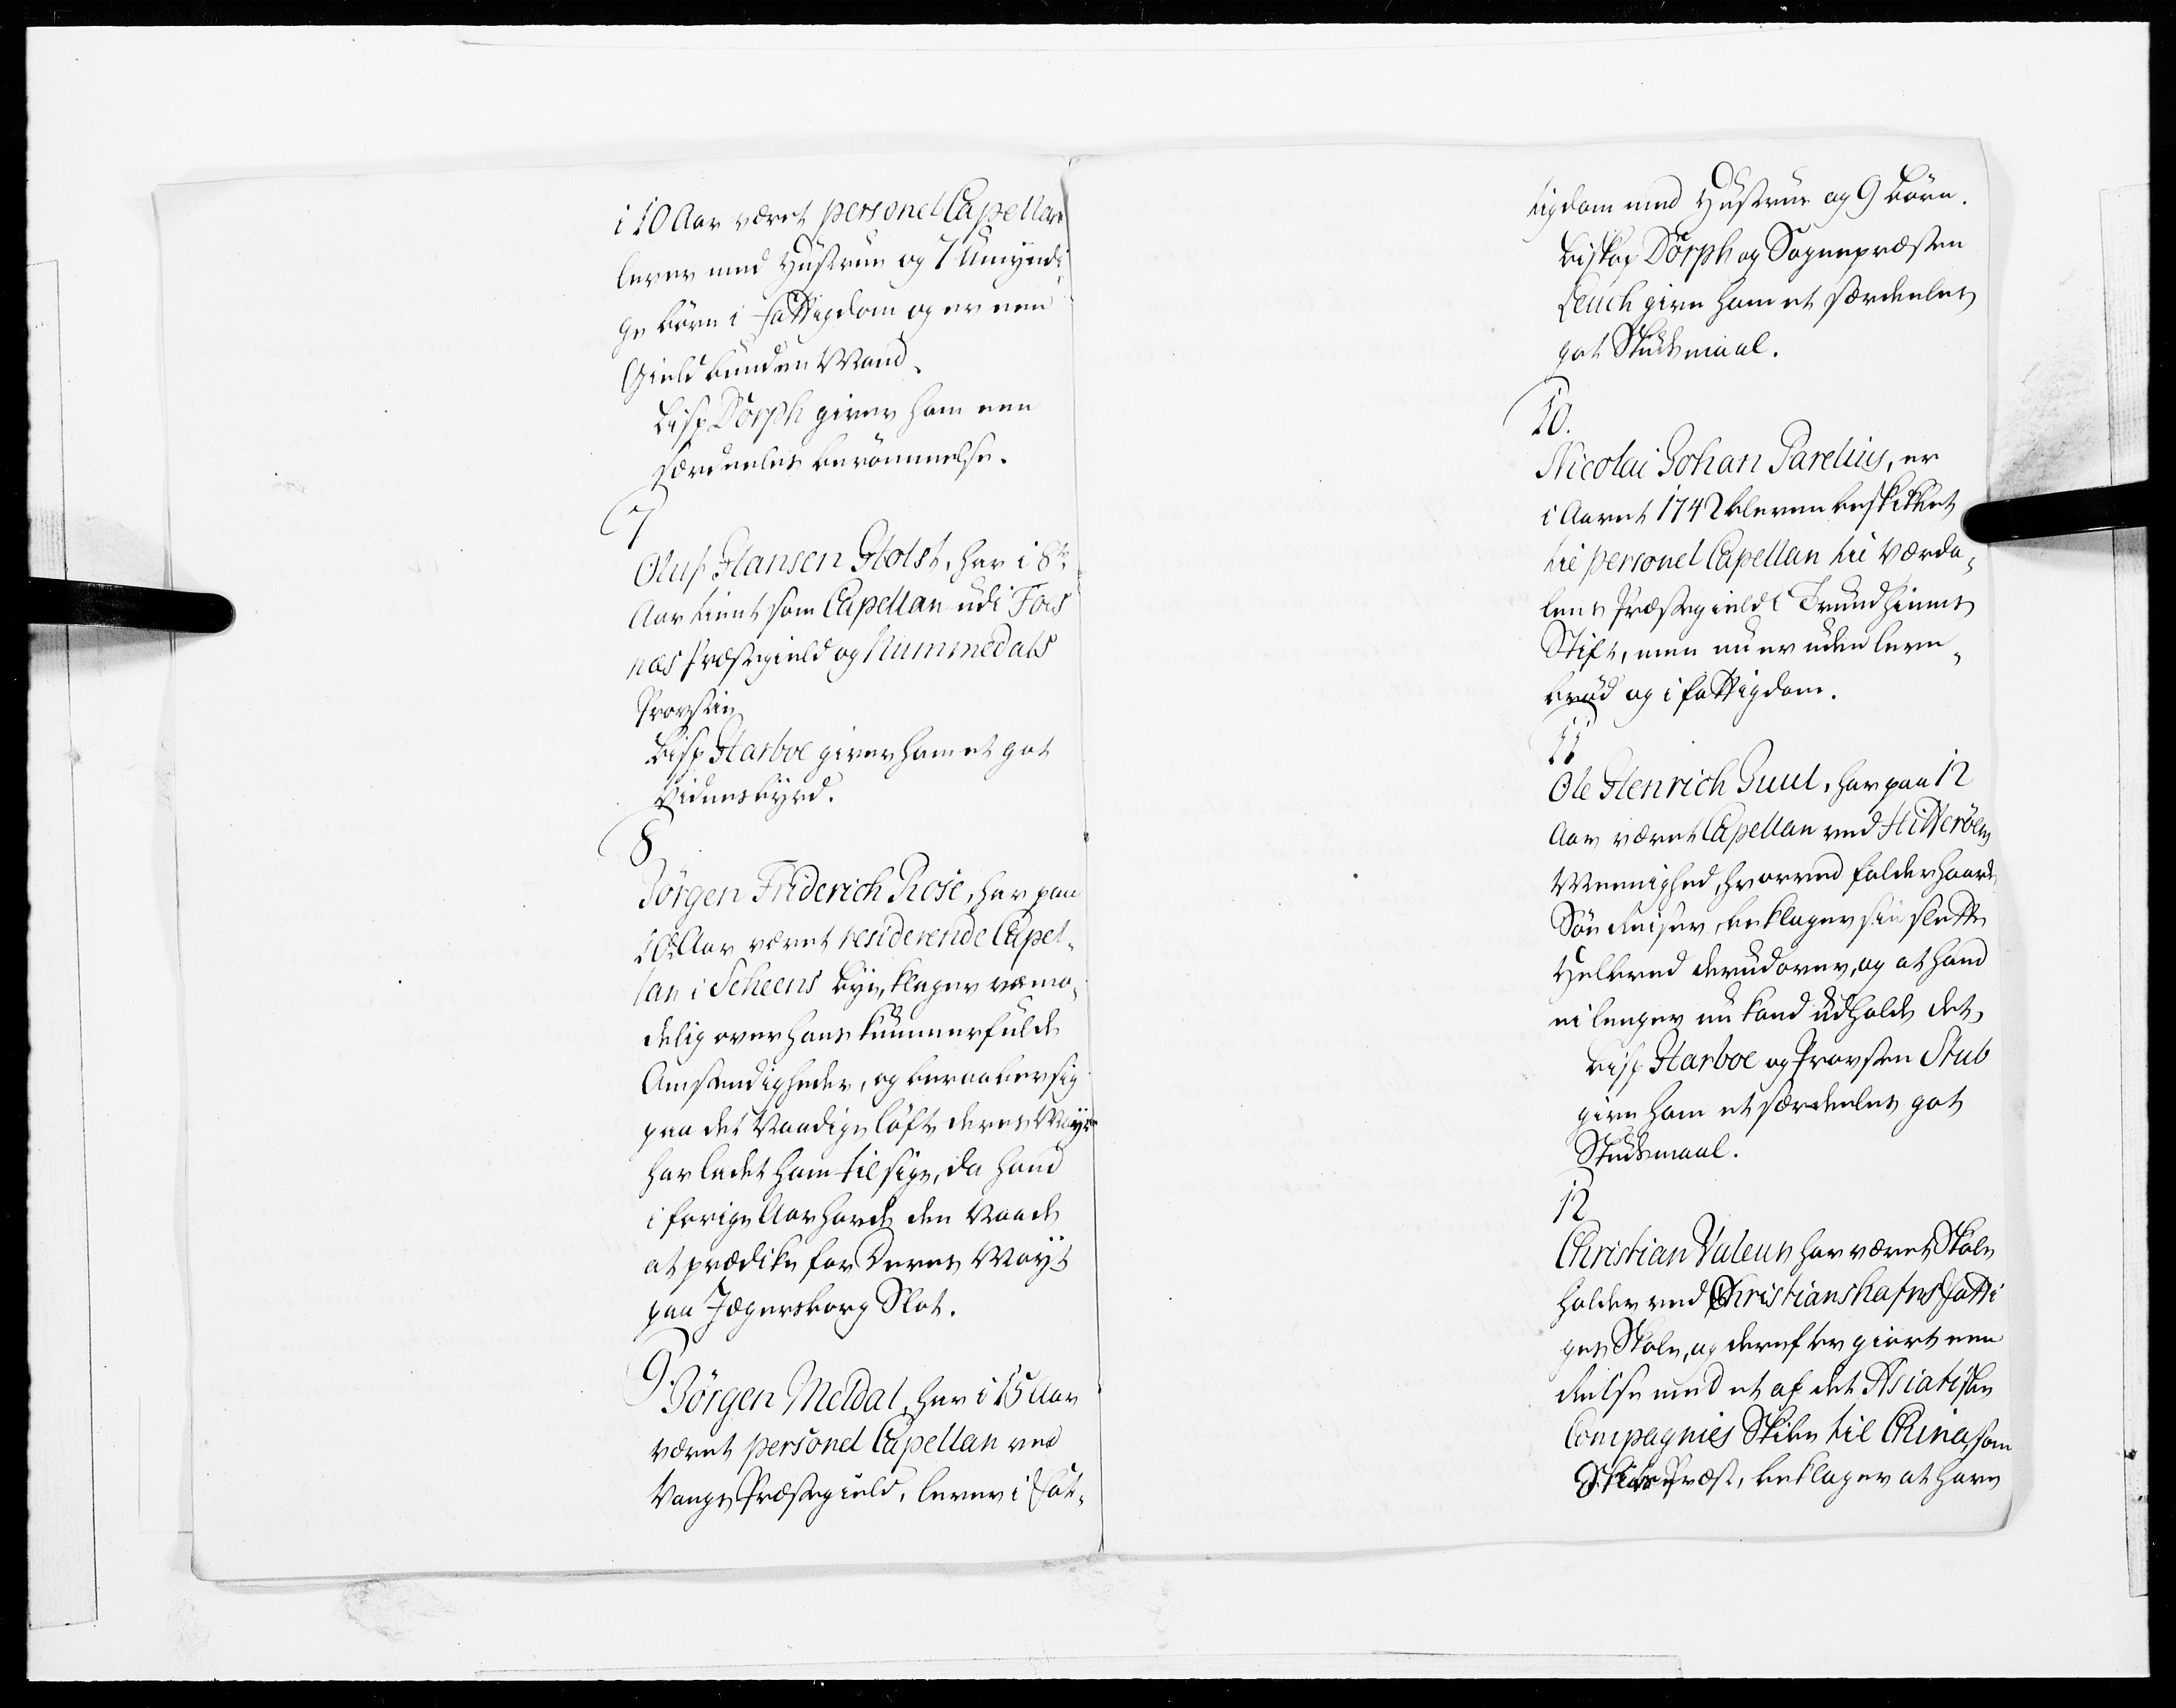 i 10 Aar været personel Capellan
lever med Hustrue og 7 Umyndi¬
ge børn i fattigdom og er een
Gield bunden Mand.
Bisp Dorph giver ham een
særdeeles berømmelse.
7
Oluf Hansen Holst, har i 8te
Aar tient som Capellan udi Foes
næs Præstegield og Nummedals
Provstie
Bisp Harboe giver ham et got
Vidnesbyrd.
8
Jørgen Friderich Rose, har paa
10de Aar været residerende Capel¬
lan i Scheens bye, klager væmo¬
delig over hans kummerfulde
Omstendigheder, og beraaber sig
paa det Naadige løfte deres Mayt
har ladet ham tilsige, da hand
i forige Aar hafde den Naade
at prædike for Deres Mayt
paa Jægersborg Slot.
9.
Jørgen Meldal, har i 15 Aar
været personel Capellan ved
Vangs Præstegield, lever i Fat¬
tigdom med Hustrue og 9 børn.
Biskop Dorph og Sognepræsten
Leuch give ham et særdeeles
got Skudsmaal.
10.
Nicolai Johan Parelius, er
i Aaret 1742 bleven beskikket
til personel Capellan til Værda¬
lens Præstegield i Trundhiems
Stift, men nu er uden leve¬
brød og i fattigdom.
11
Ole Henrich Juul, har paa 12
Aar været Capellan ved Hitterøens
Meenighed, hvorved falder haarde
Søe Reiser, beklager sin slette
Helbred derudover, og at hand
ei lenger nu kand udholde det,
Bisp Harboe og Provsten Stub
give ham et særdeeles got
Skudsmaal.
12
Christian Valeur har været Skole
holder ved Christianshafns Fatti
ges Skole, og derefter giort een
Reise med et af det Asiatiske
Compagnies Skibe til China, som
Skibs Præst, beklager at have